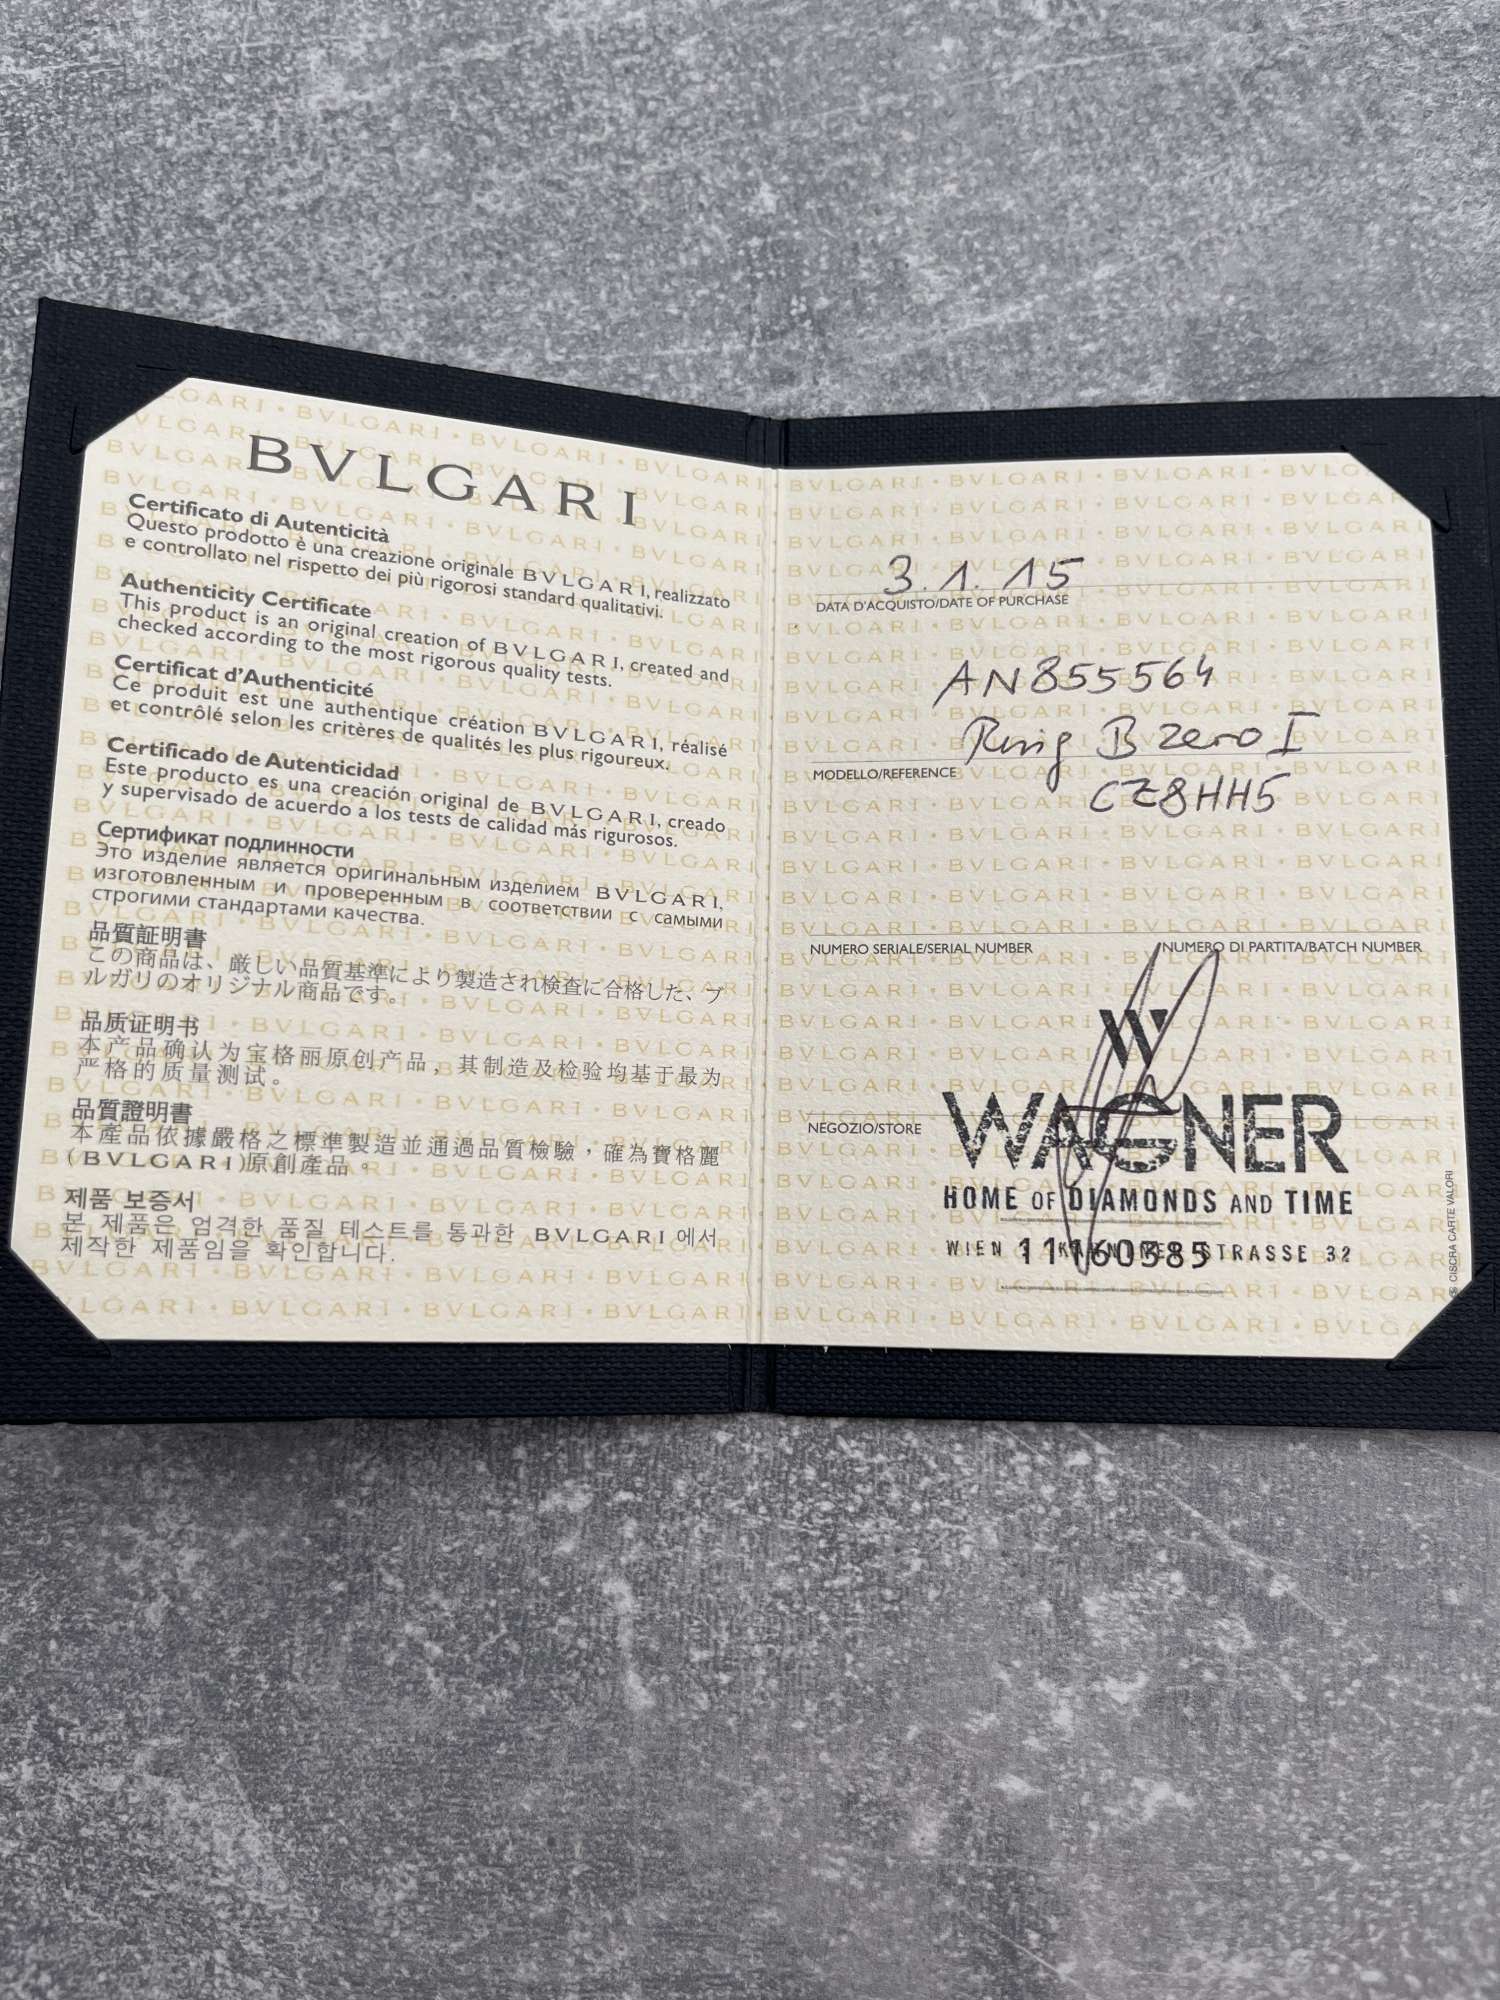 BVLGARI
Certificato di Autenticità
Questo prodotto è una creazione originale BVLGARI, realizzato
e controllato nel rispetto dei più rigorosi standard qualitativi.
Authenticity Certificate
This product is an original creation of BVLGARI, created and
checked according to the most rigorous quality tests.
Certificat d'Authenticité
Ce produit est une authentique création BVLGARI, réalisé
et contrôlé selon les critères de qualités les plus rigoureux.
Certificado de Autenticidad
Este producto es una creación original de BVLGARI, creado
y supervisado de acuerdo a los tests de calidad más rigurosos.
Сертификат подлинности
Это изделие является оригинальным изделием BVLGARI,
изготовленным и проверенным в соответствии с самыми
строгими стандартами качества.
品質証明書
この商品は、厳しい品質基準により製造され検査に合格した、ブ
ルガリのオリジナル商品です。
品质证明书
本产品确认为宝格丽原创产品，其制造及检验均基于最为
严格的质量测试。
品質證明書
本產品依據嚴格之標準製造並通過品質檢驗，確為寶格麗
(BVLGARI)原創產品
제품 보증서
본 제품은 엄격한 품질 테스트를 통과한 BVLGARI에서
제작한 제품임을 확인합니다.
3.1.15
DATA D'ACQUISTO/DATE OF PURCHASE
AN855564
Ring B zero I
MODELLO/REFERENCE
CZ8HH5
NUMERO SERIALE/SERIAL NUMBER NUMERO DI PARTITA/BATCH NUMBER
W
NEGOZIO/STORE WAGNER
HOME OF DIAMONDS AND TIME
WIEN STRASSE 32
11160585
CISCRA CARTE VALORI